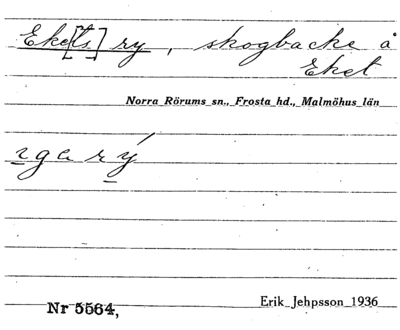 Eke[ts] ry, skogbacke å
Eket
Norra Rörums sn., Frosta hd., Malmöhus län
ega rý
Nr 5564,
Erik Jehpsson 1936